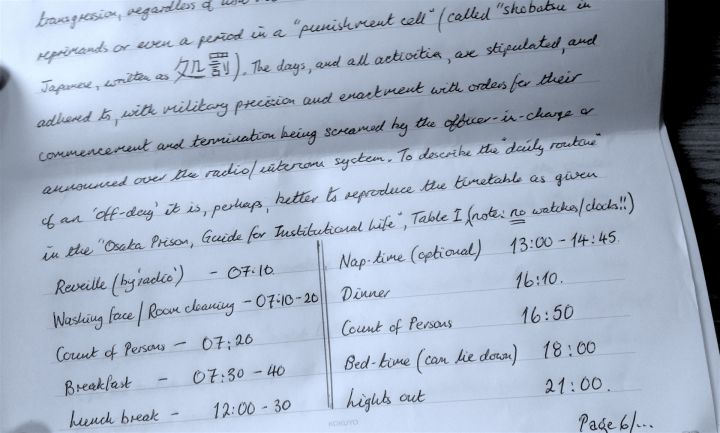 transgression, regardless of
reprimands or even a period in a "punishment cell" (called "shobatsu in
Japanese, written as 処罰). The days, and all activities, are stipulated, and
adhered to, with military precision and enactment with orders for their
commencement and termination being screamed by the officer-in-charge or
announced over the radio/intercom system. To describe the "daily routine"
of an 'off-day' it is, perhaps, better to reproduce the timetable as given
in the "Osaka Prison, Guide for Institutional Life", Table I (note: no watches/clocks!!)
Reveille (by 'radio') - 07:10
Washing face / Room cleaning - 07:10-20
Count of Persons - 07:20
Breakfast - 07:30 - 40
Lunch break - 12:00 - 30
Nap-time (optional) 13:00 - 14:45.
Dinner 16:10.
Count of Persons 16:50
Bed-time (can lie down) 18:00
Lights out 21:00.
Page 6/...
KOKUYO